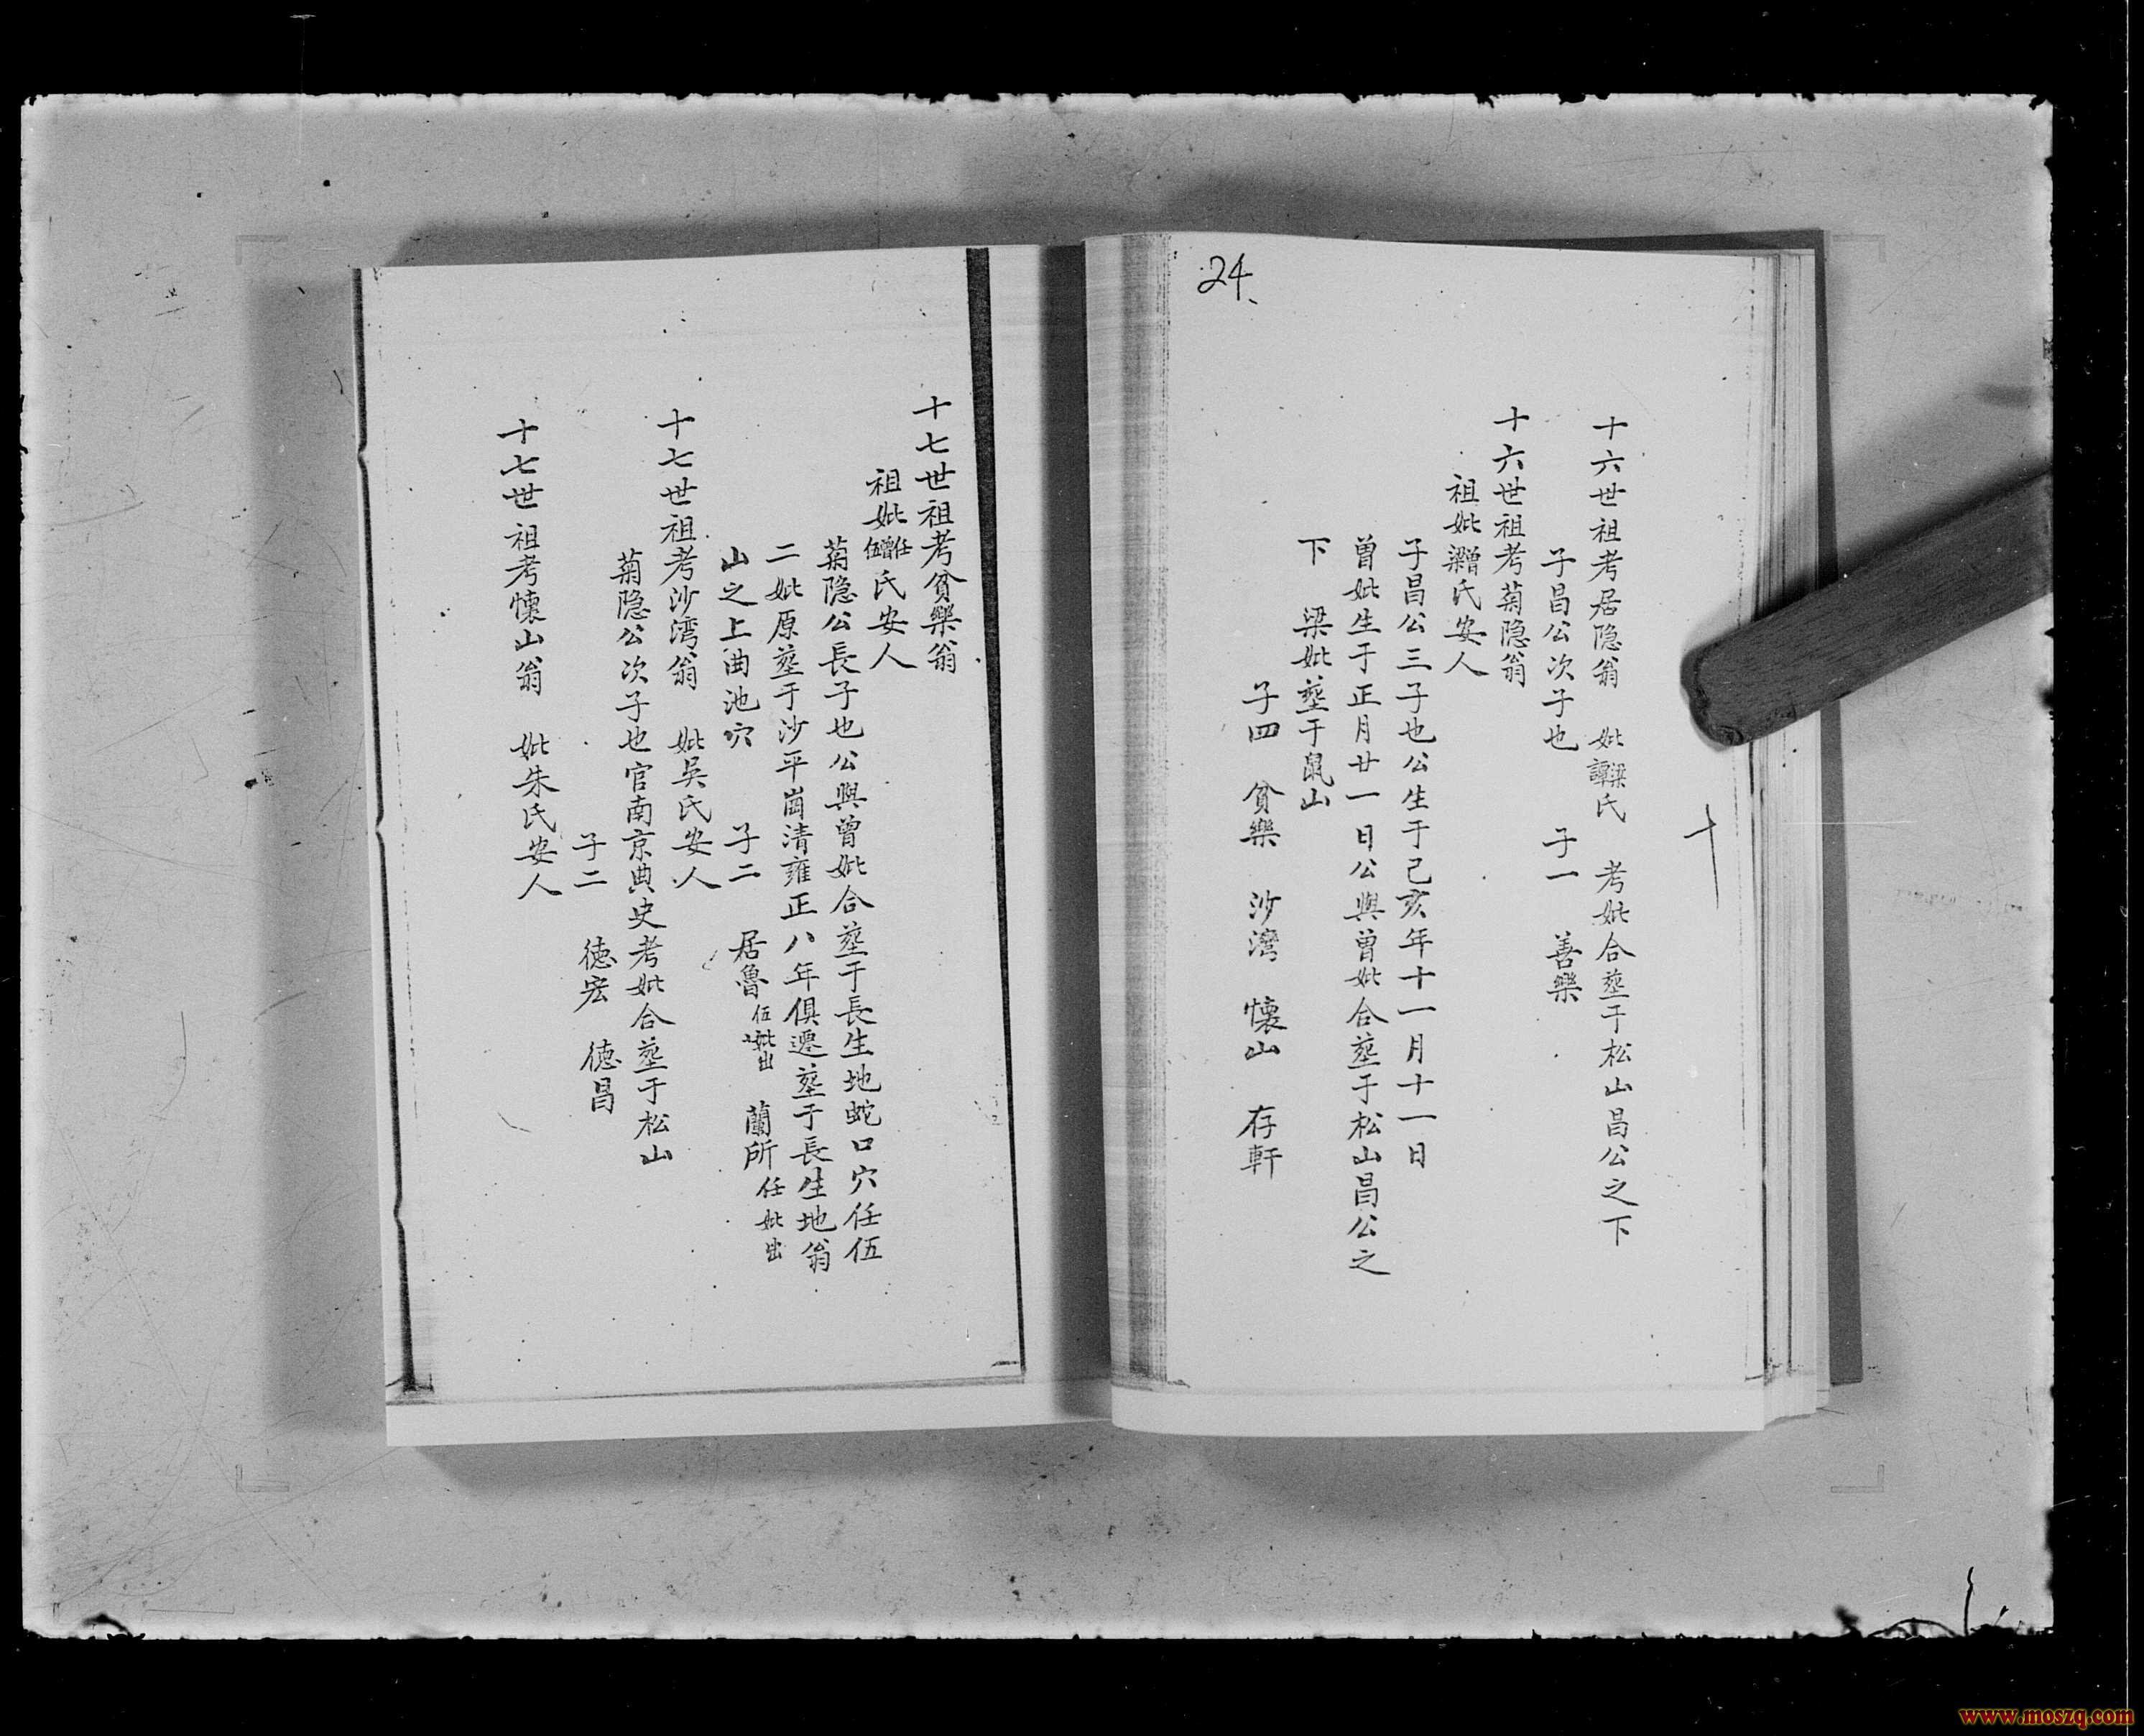 24、
十六世祖考居隐翁　妣梁譚氏　考妣合塟于松山昌公之下
子昌公次子也　子一　善樂
十六世祖考菊隐翁
祖妣曾梁氏安人
子昌公三子也公生于己亥年十一月十一日
曾妣生于正月廿一日公與曾妣合塟于松山昌公之
下　梁妣塟于鼠山
子四　貧樂　沙灣　懐山　存軒
十七世祖考貧樂翁
祖妣任曾伍氏安人
菊隐公長子也公與曾妣合塟于長生地蛇口穴任伍
二妣原塟于沙平崗清雍正八年俱遷塟于長生地翁
山之上曲池穴　子二　居魯伍妣出　蘭所任妣出
十七世祖考沙湾翁　妣吳氏安人
菊隐公次子也官南京典史考妣合塟于松山
子二　徳宏　徳昌
十七世祖考懐山翁　妣朱氏安人
www.moszq.com